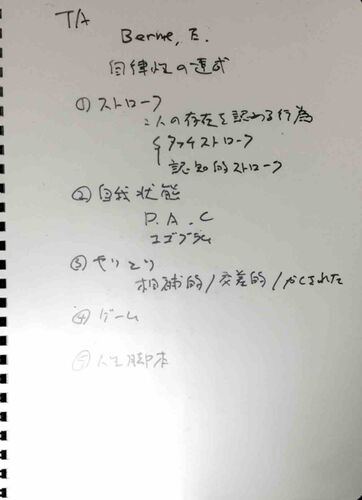 T/A
Berne, E.
自律性の達成
① ストローク
:人の存在を認める行為
タッチストローク
認知的ストローク
② 自我状態
P. A. C
エゴグラム
③ やりとり
相補的/交差的/かくされた
④ ゲーム
⑤ 人生脚本